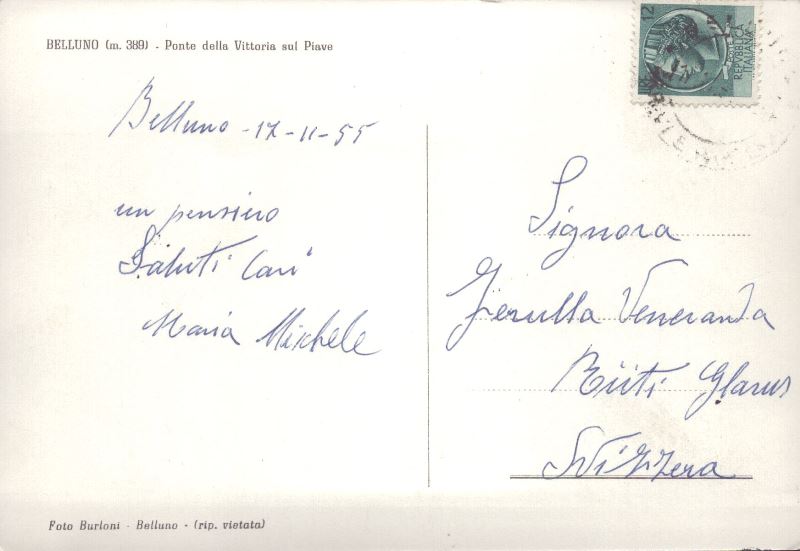 BELLUNO (m. 389) - Ponte della Vittoria sul Piave
Belluno - 17-11-55
un pensiero
Saluti Cari
Maria Michele
12
POSTE
REPVBBLICA
ITALIANA
Signora
Veneranda
Rüti Glarus
Svizzera
Foto Burloni - Belluno - (rip. vietata)